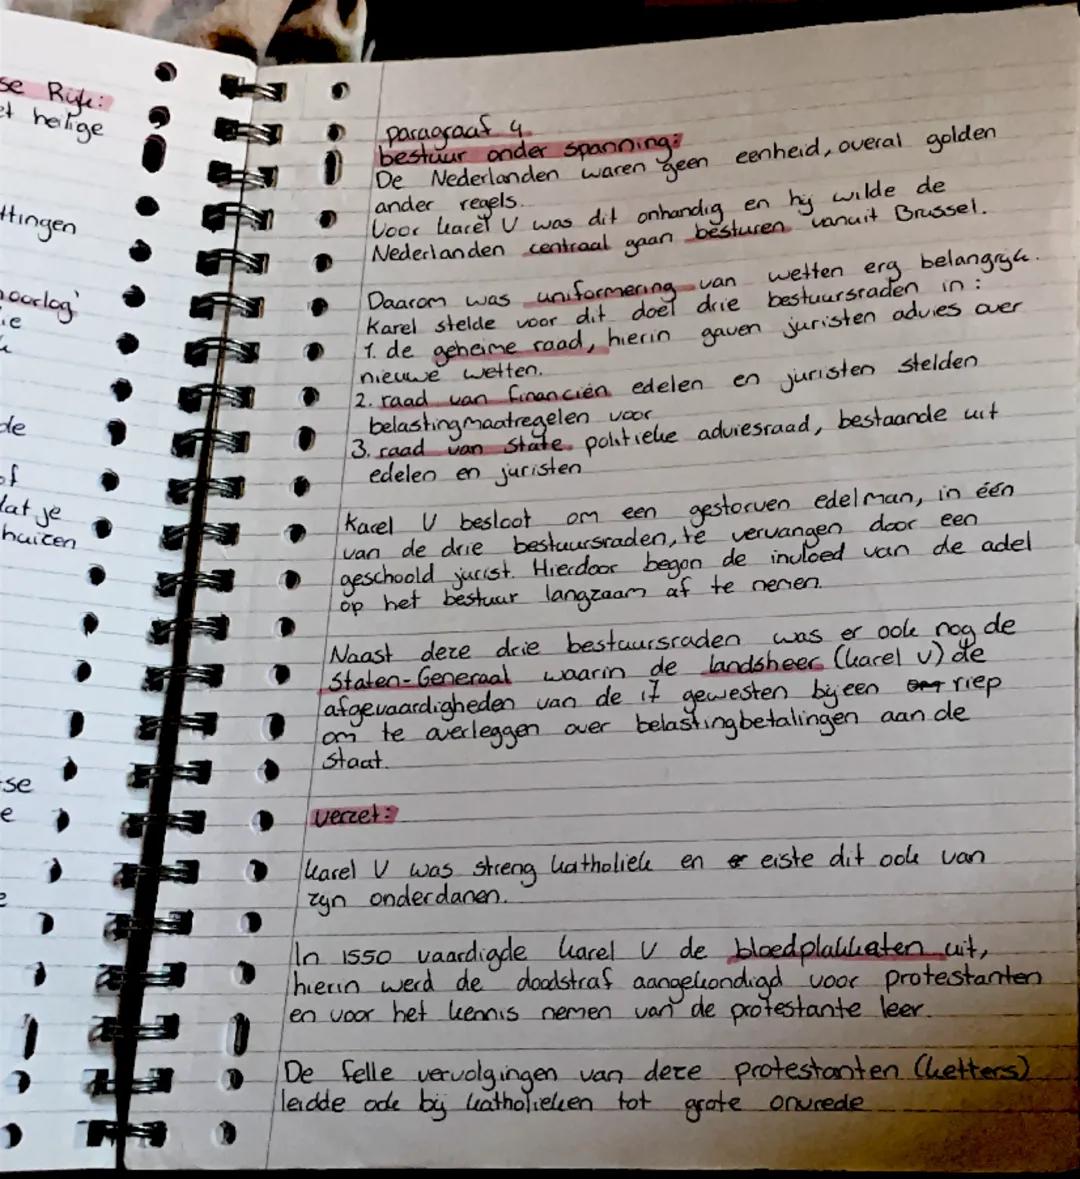 se Rijk:
et heilige
ttingen
oorlog'
ie
de
of
dat je
huizen
se
e
paragraaf 4
bestuur onder spanning:
De Nederlanden waren geen eenheid, overal golden
ander regels.
Voor karel V was dit onhandig en hij wilde de
Nederlanden centraal gaan besturen vanuit Brussel.
Daarom was uniformering van wetten erg belangrijk.
Karel stelde voor dit doel drie bestuursraden in:
1. de geheime raad, hierin gaven juristen advies over
nieuwe wetten.
2. raad van financiën edelen en juristen stelden
belastingmaatregelen voor
3. raad van State. politieke adviesraad, bestaande uit
edelen en juristen
Karel V besloot om een gestorven edelman, in één
van de drie bestuursraden, te vervangen door een
geschoold jurist. Hierdoor begon de invloed van de adel
op het bestuur langzaam af te nemen.
Naast deze drie bestuursraden was er ook nog de
Staten-Generaal waarin de landsheer (karel V) de
afgevaardigheden van de 17 gewesten bijeen riep
om te overleggen over belastingbetalingen aan de
staat.
verzet:
karel V was streng katholiek en eiste dit ook van
zijn onderdanen.
In 1550 vaardigde karel V de bloedplakkaten uit,
hierin werd de doodstraf aangekondigd voor protestanten
en voor het kennis nemen van de protestante leer.
De felle vervolgingen van deze protestanten (ketters)
leidde ook bij katholieken tot grote onvrede